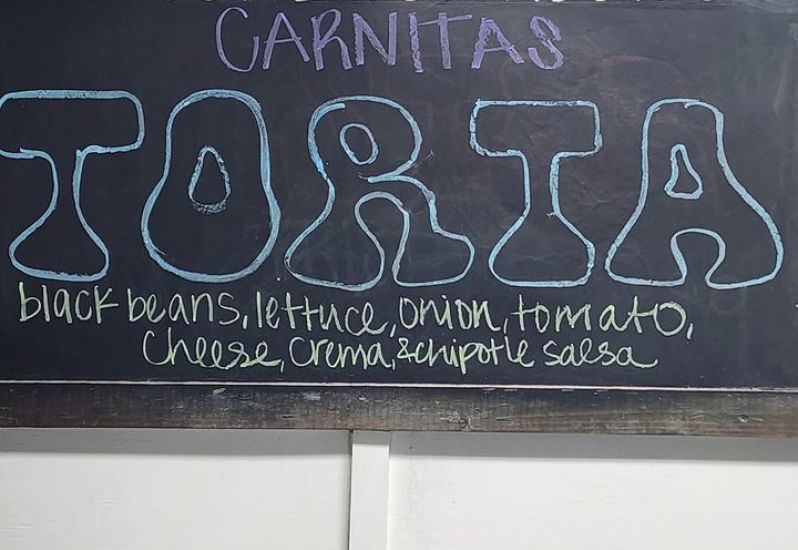 CARNITAS
TORTA
black beans, lettuce, onion, tomato,
cheese, crema, & chipotle salsa